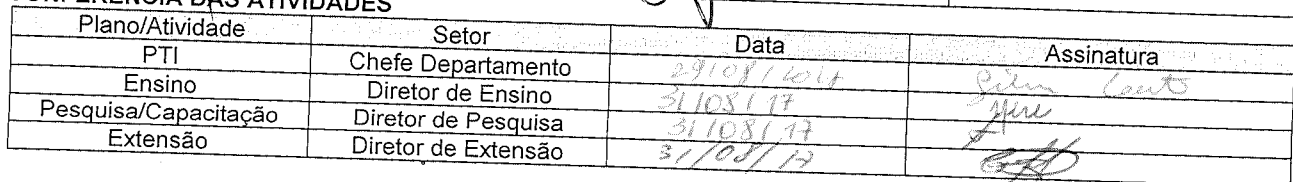 CONFERÊNCIA DAS ATIVIDADES
Plano/Atividade Setor Data Assinatura
PTI Chefe Departamento 29/08/2017
Ensino Diretor de Ensino 31/08/17
Pesquisa/Capacitação Diretor de Pesquisa 31/08/17
Extensão Diretor de Extensão 31/08/17